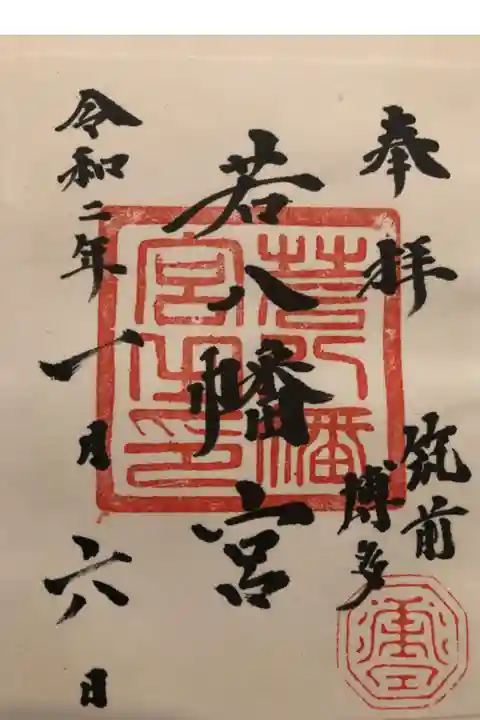 奉拝
筑前
博多
若八幡宮
若八幡
宮之印
令和二年
一月
六日